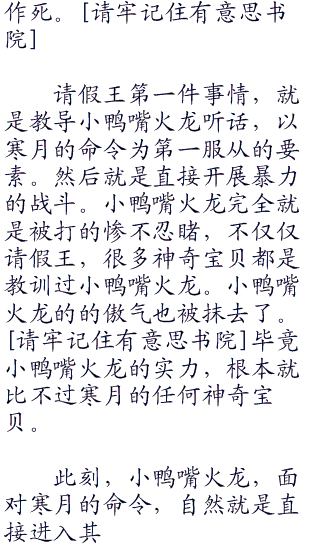 作死。[请牢记住有意思书
院]
请假王第一件事情，就
是教导小鸭嘴火龙听话，以
寒月的命令为第一服从的要
素。然后就是直接开展暴力
的战斗。小鸭嘴火龙完全就
是被打的惨不忍睹，不仅仅
请假王，很多神奇宝贝都是
教训过小鸭嘴火龙。小鸭嘴
火龙的的傲气也被抹去了。
[请牢记住有意思书院]毕竟
小鸭嘴火龙的实力，根本就
比不过寒月的任何神奇宝
贝。
此刻，小鸭嘴火龙，面
对寒月的命令，自然就是直
接进入其